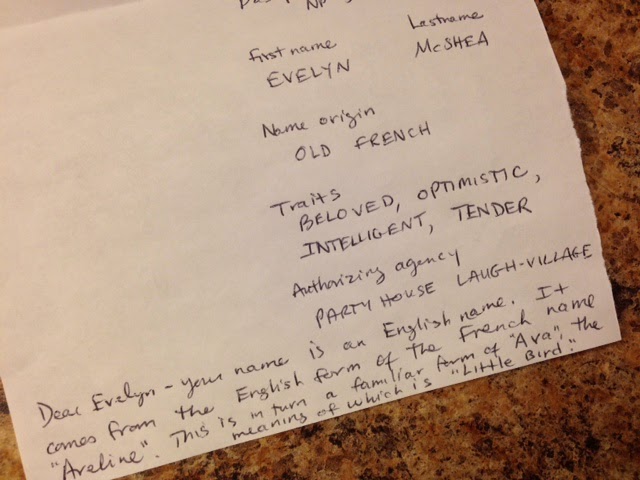 NP
First name Lastname
EVELYN McSHEA
Name origin
OLD FRENCH
Traits
BELOVED, OPTIMISTIC,
INTELLIGENT, TENDER
Authorizing agency
PARTY HOUSE LAUGH-VILLAGE
Dear Evelyn - your name is an English name. It
comes from the English form of the French name
"Aveline". This is in turn a familiar form of "Ava", the
meaning of which is "Little Bird".